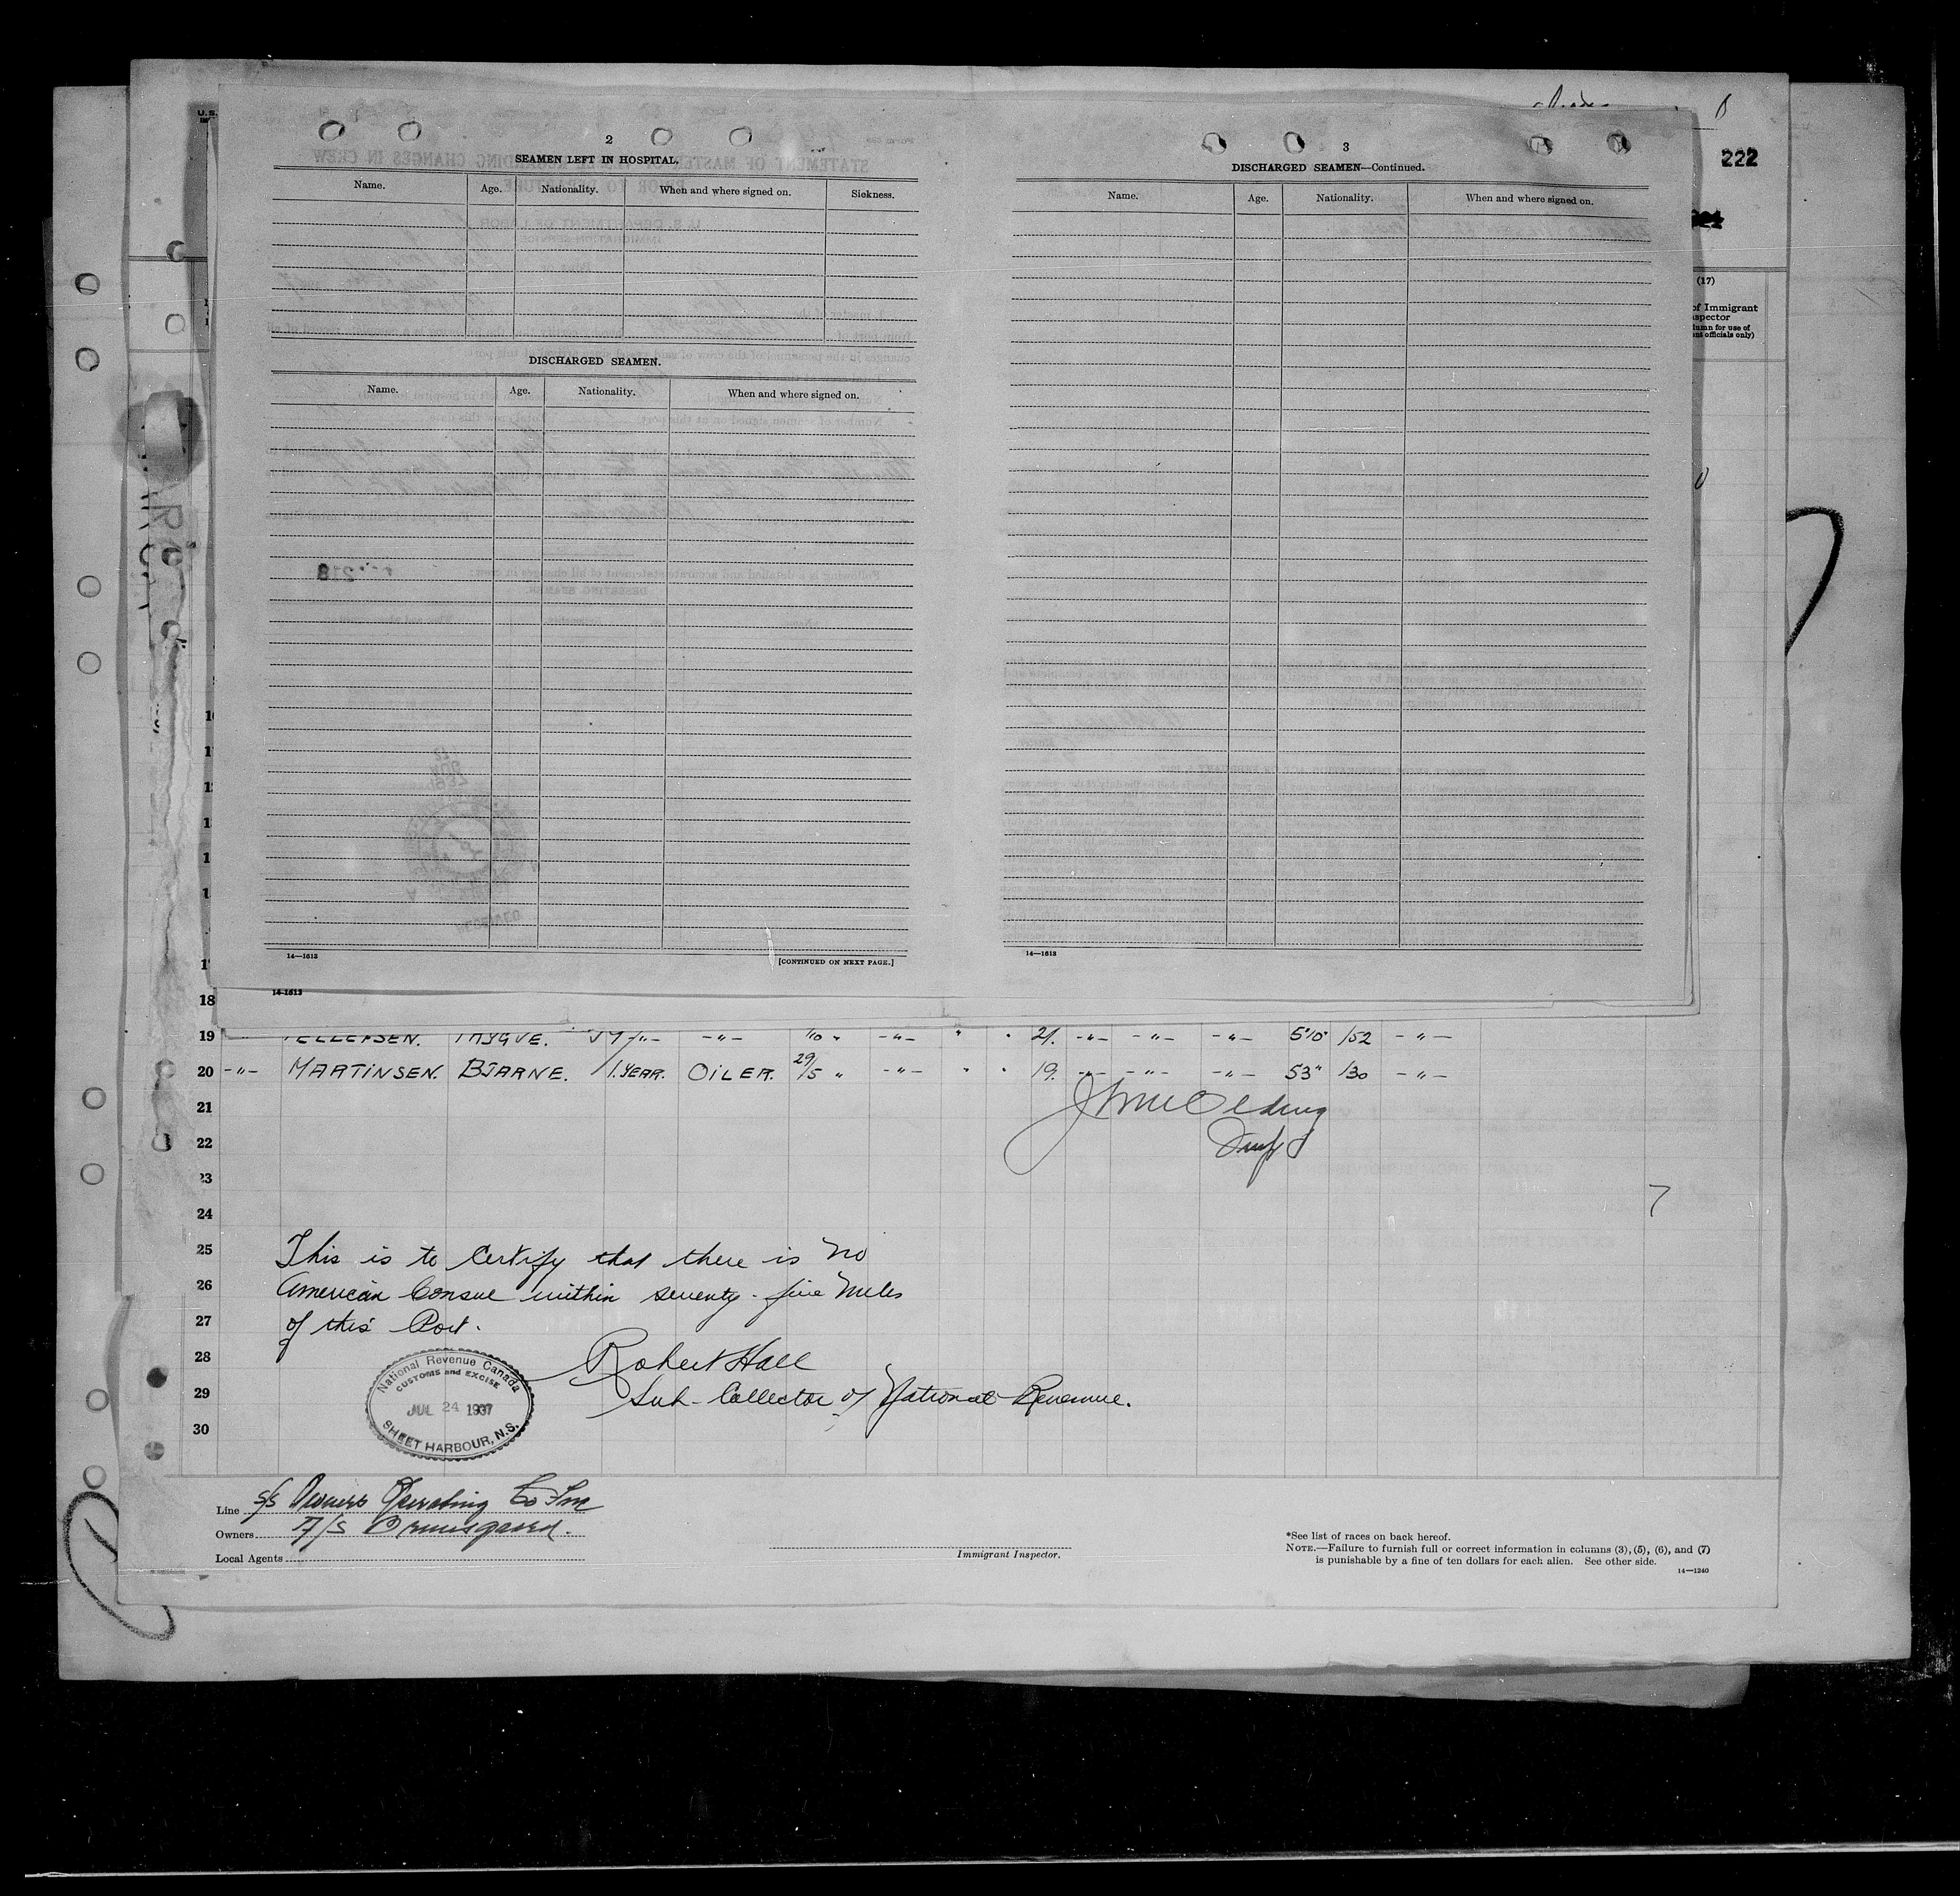 2
SEAMEN LEFT IN HOSPITAL.
Name. Age. Nationality. When and where signed on. Sickness.
DISCHARGED SEAMEN.
Name. Age. Nationality. When and where signed on.
14—1613
[CONTINUED ON NEXT PAGE.]
14-1613
3
DISCHARGED SEAMEN—Continued.
Name. Age. Nationality. When and where signed on.
14—1613
222
(17)
of Immigrant
spector
lumn for use of
officials only)
18
19 TRYGVE. -"- -"- 21. -"- -"- -"- 5'10" 152 -"-
20 -"- MARTINSEN. BJARNE. 1.YEAR. OILER. 29/5 " -"- " " 19. -"- -"- -"- 53" 130 -"-
21
22
23
24
25 This is to Certify that there is no
26 American Consul within seventy-five miles
27 of this Port.
28 Robert Hall
29 Sub-Collector of National Revenue.
30
National Revenue Canada
CUSTOMS and EXCISE
JUL 24 1937
SHEET HARBOUR, N.S.
Line S/S Owners Operating Co Inc
Owners
Local Agents
Immigrant Inspector.
*See list of races on back hereof.
NOTE.—Failure to furnish full or correct information in columns (3), (5), (6), and (7)
is punishable by a fine of ten dollars for each alien. See other side.
14—1240